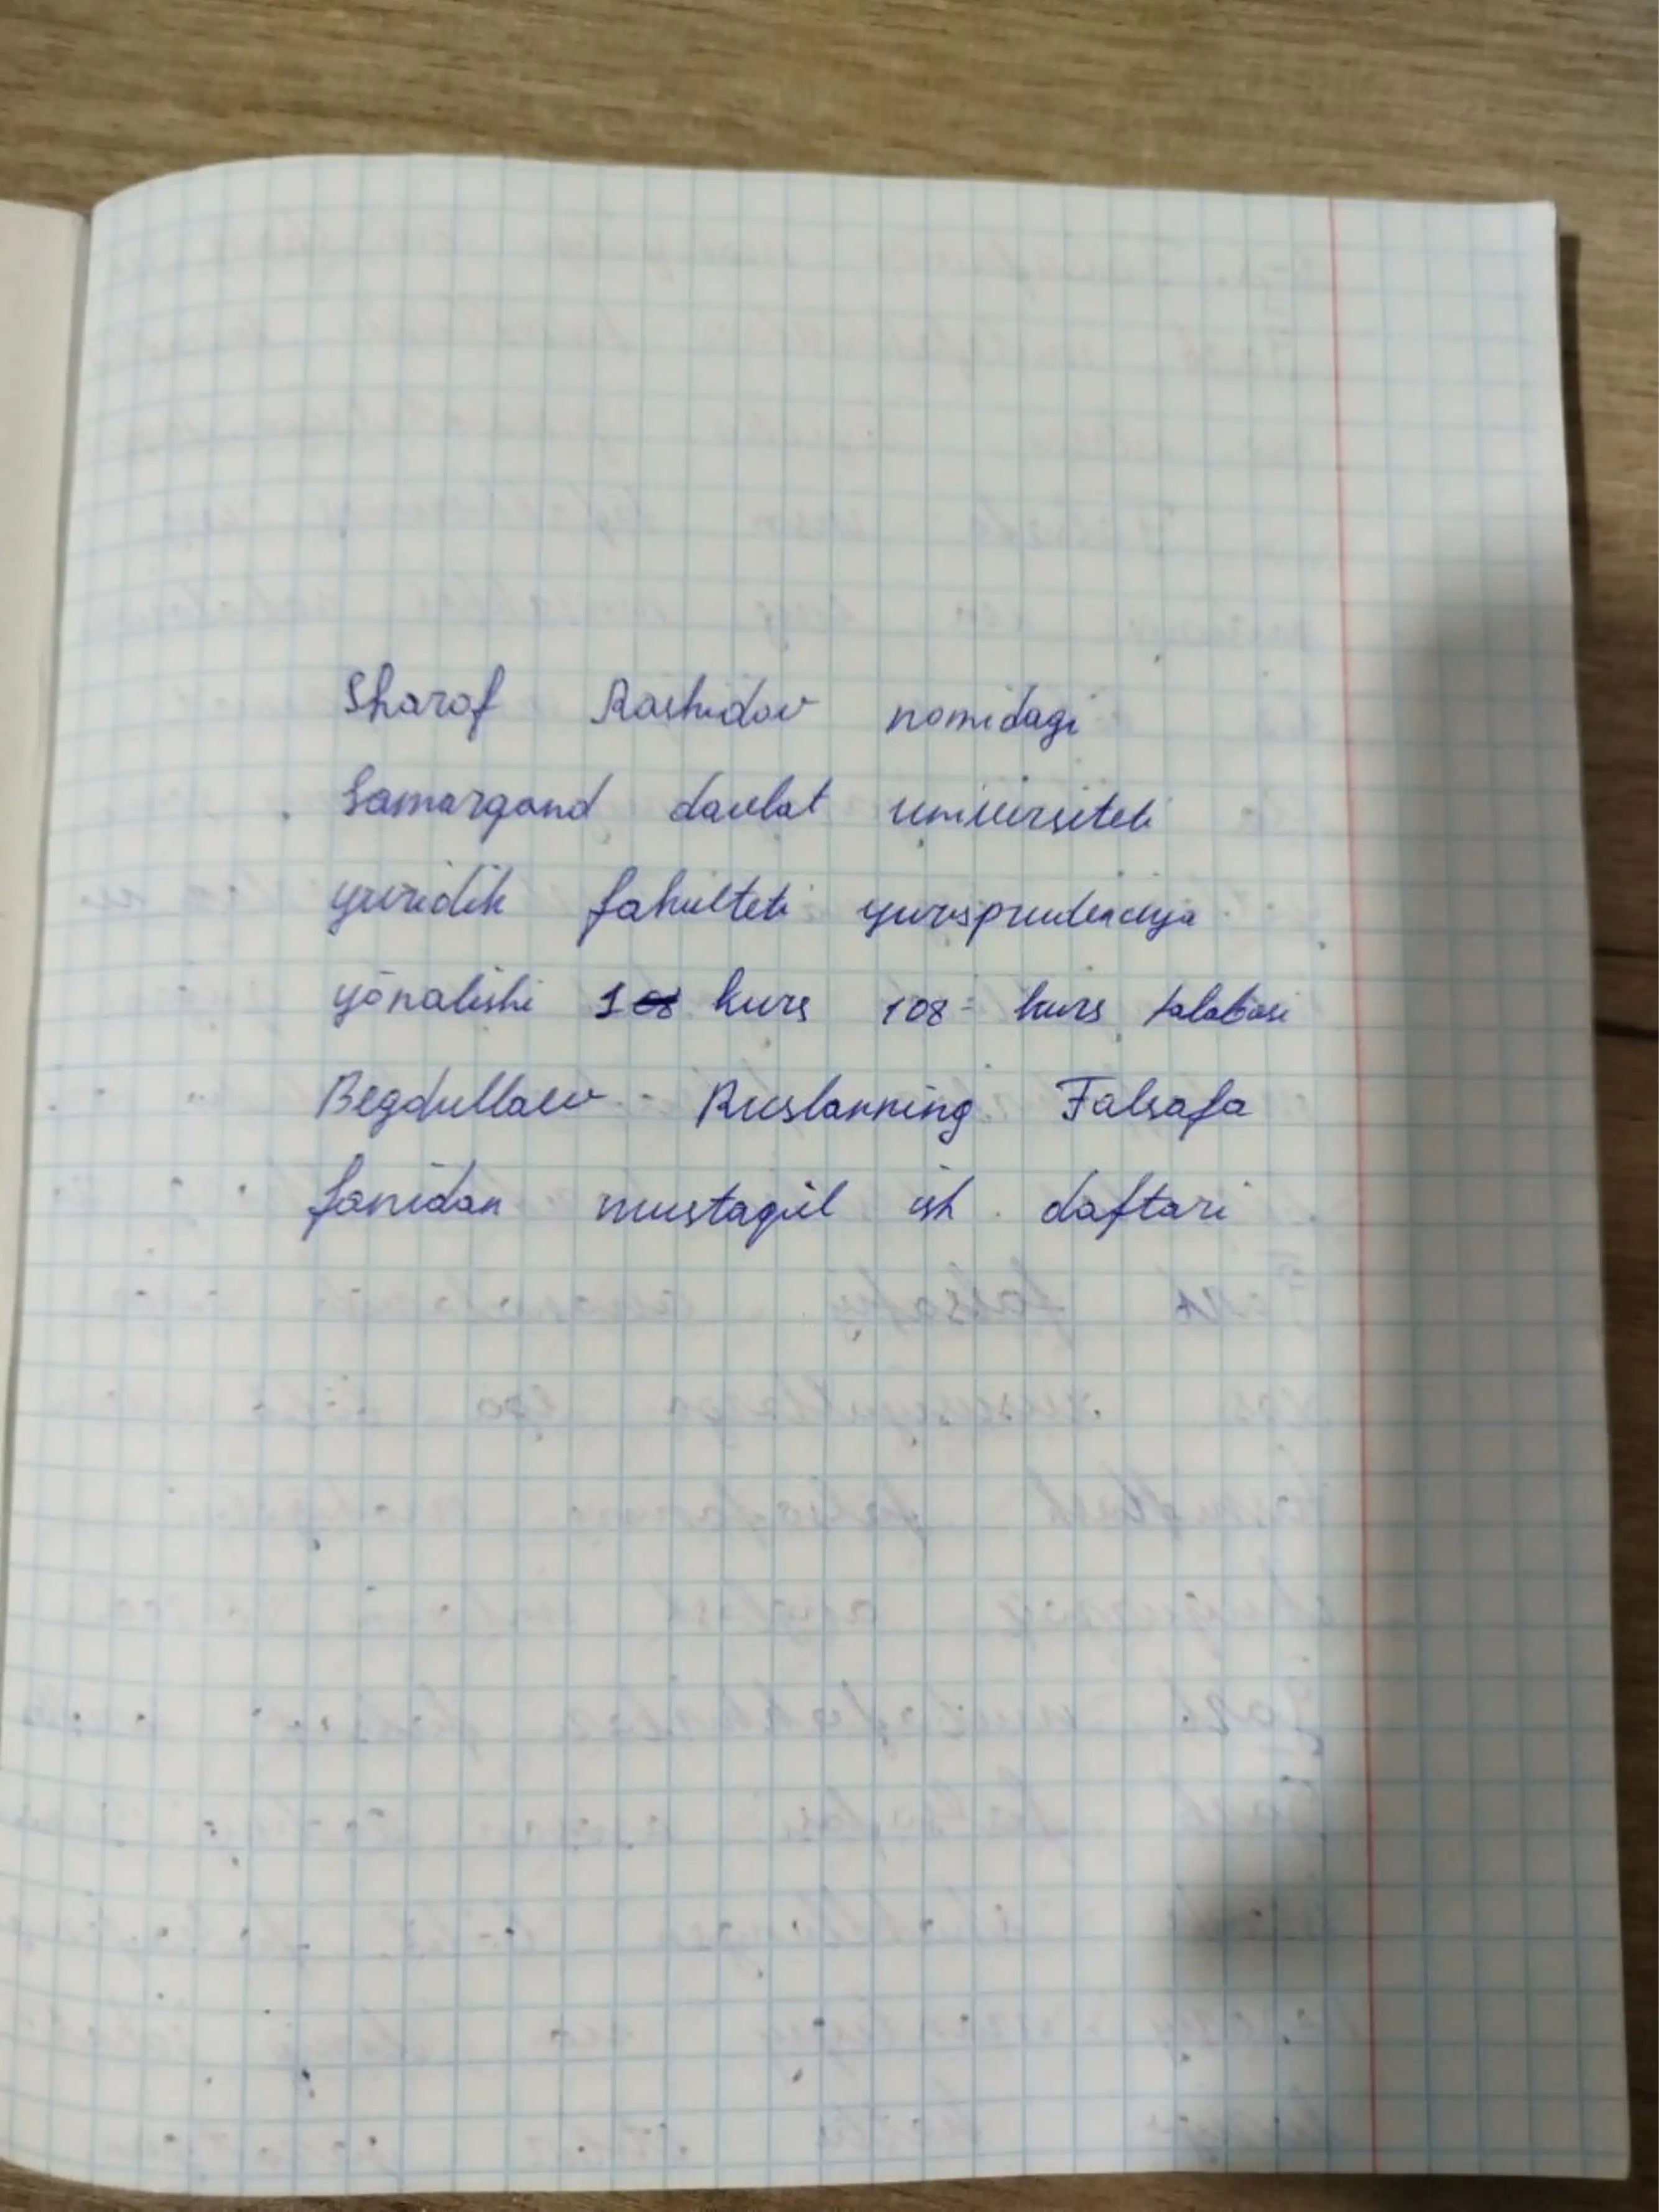 Sharof Rashidov nomidagi
Samarqand davlat universiteti
yuridik fakulteti yursprudenciya
yōnalishi 1 kurs 108- kurs talabasi
Begdullaev Ruslanning Falsafa
fanidan mustaqil ish daftari